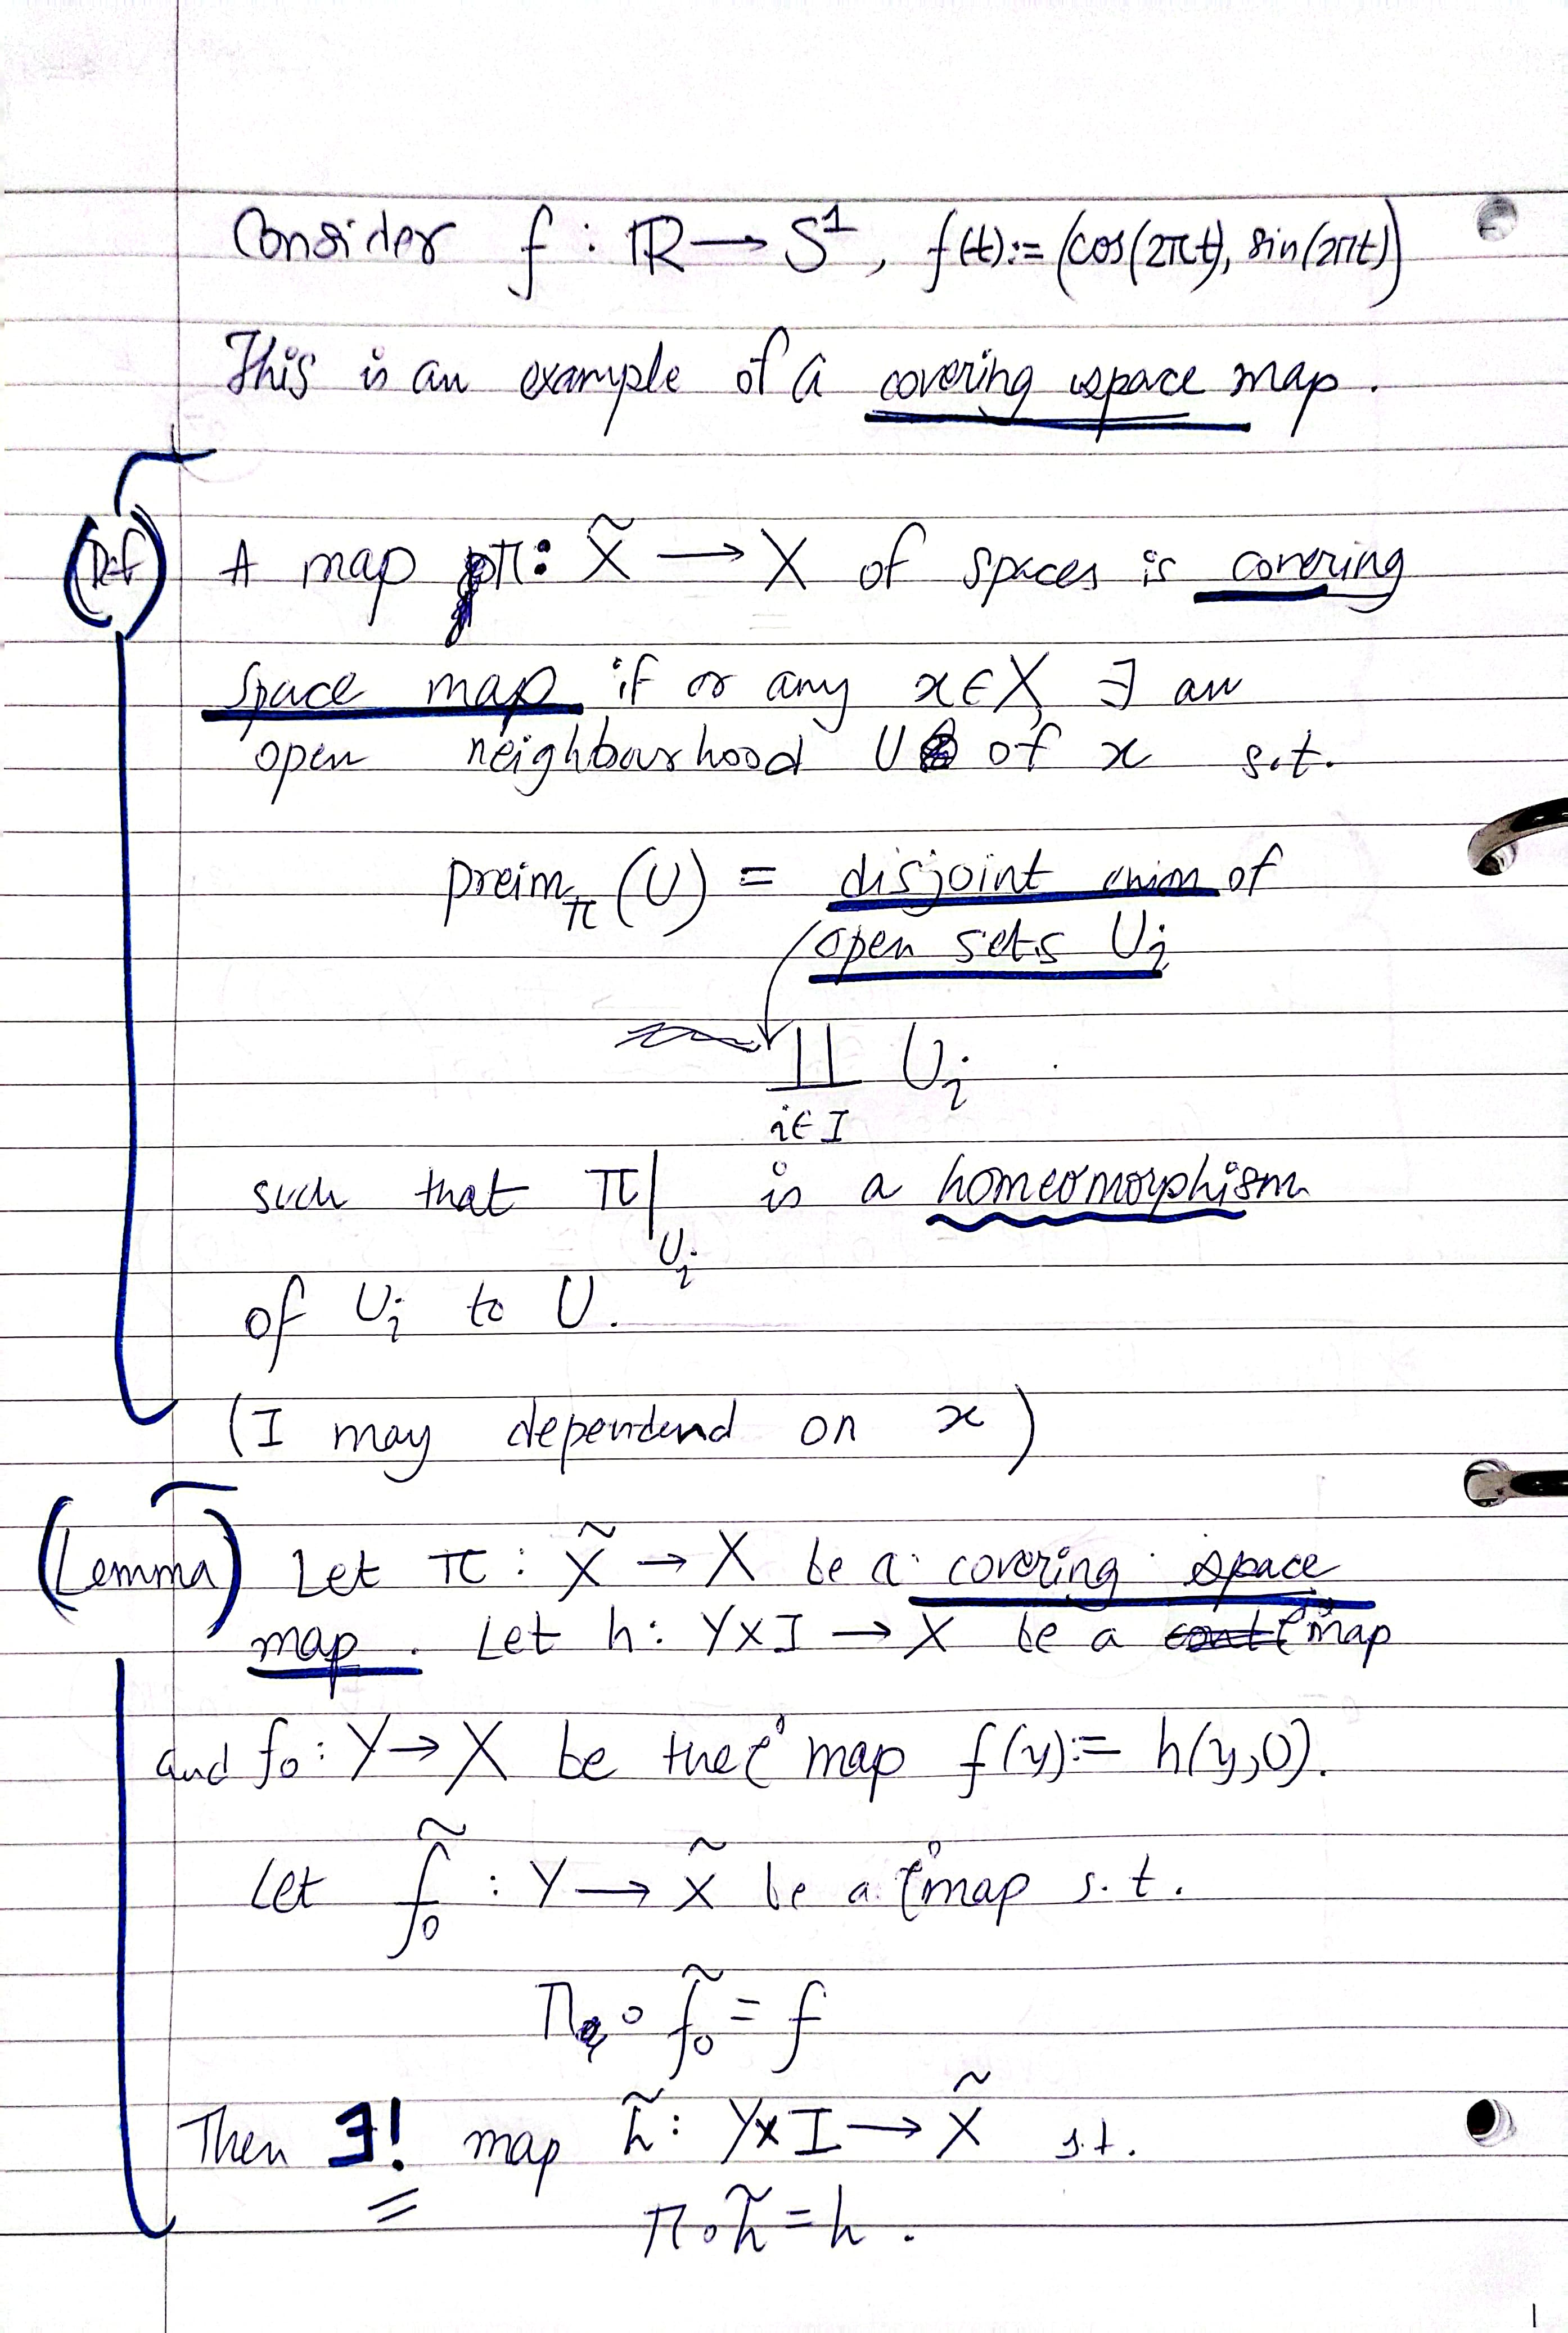 Consider f : ℝ → S¹, f(t) := (cos(2πt), sin(2πt))
This is an example of a covering space map.
(Def) A map π: X̃ → X of spaces is covering
space map if or any x ∈ X, ∃ an
open neighbourhood U of x s.t.
preim_π (U) = disjoint union of
open sets U_i
∐ U_i
i ∈ I
such that π|_{U_i} is a homeomorphism
of U_i to U.
(I may dependend on x)
(Lemma) Let π : X̃ → X be a covering space
map. Let h: Y×I → X be a C⁰ map
and f₀ : Y → X be the C⁰ map f(y) := h(y,0).
Let f̃₀ : Y → X̃ be a C⁰ map s.t.
π ∘ f̃₀ = f
Then ∃! map h̃ : Y×I → X̃ s.t.
π ∘ h̃ = h .
1